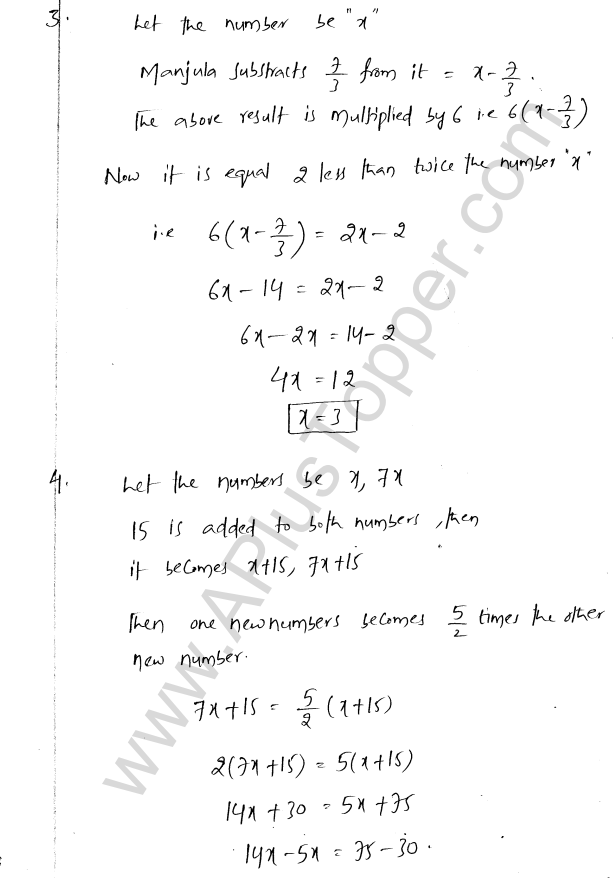 3. Let the number be "x"
Manjula substracts 7/3 from it = x - 7/3.
The above result is multiplied by 6 i.e 6(x - 7/3)
Now it is equal 2 less than twice the number "x"
i.e 6(x - 7/3) = 2x - 2
6x - 14 = 2x - 2
6x - 2x = 14 - 2
4x = 12
x = 3
4. Let the numbers be x, 7x
15 is added to both numbers, then
it becomes x+15, 7x+15
Then one new numbers becomes 5/2 times the other
new number.
7x+15 = 5/2 (x+15)
2(7x+15) = 5(x+15)
14x + 30 = 5x + 75
14x - 5x = 75 - 30.
www.APlusTopper.com